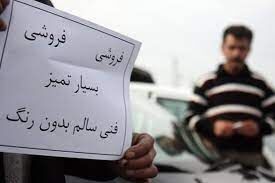 فروشی فروشی
بسیار تمیز
فنی سالم بدون رنگ